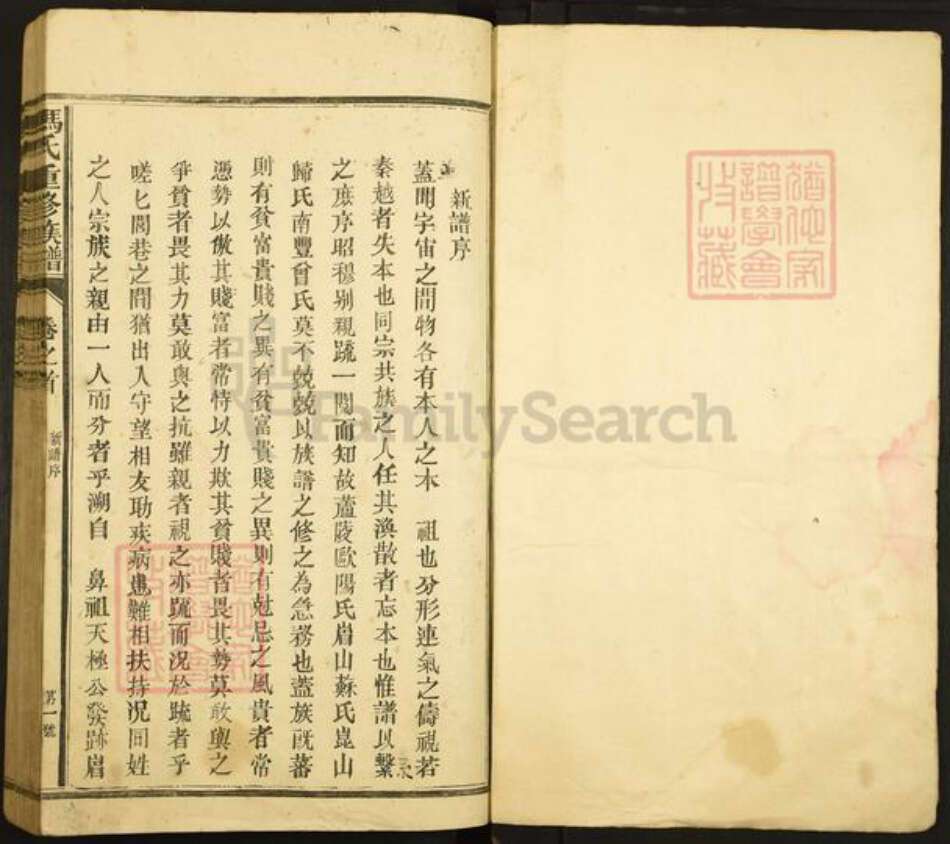 新譜序
蓋聞宇宙之間物各有本人之本 祖也分形連氣之儔視若
秦越者失本也同宗共族之人任其渙散者忘本也惟譜以繫
之庶序昭穆別親踈一閱而知故蘆陵歐陽氏眉山蘇氏崑山
歸氏南豐曾氏莫不兢兢以族譜之修之為急務也蓋族既蕃
則有貧富貴賤之異有貧富貴賤之異則有尅忌之風貴者常
憑勢以傲其賤富者常恃以力欺其貧賤者畏其勢莫敢與之
爭貧者畏其力莫敢與之抗雖親者視之亦踈而況於踈者乎
嗟乜閭巷之間猶出入守望相友助疾病患難相扶持況同姓
之人宗族之親由一人而分者乎溯自 鼻祖天極公發跡眉
馮氏重修族譜 卷之首 新譜序 第一號
猶他家
譜學會
收藏
FamilySearch